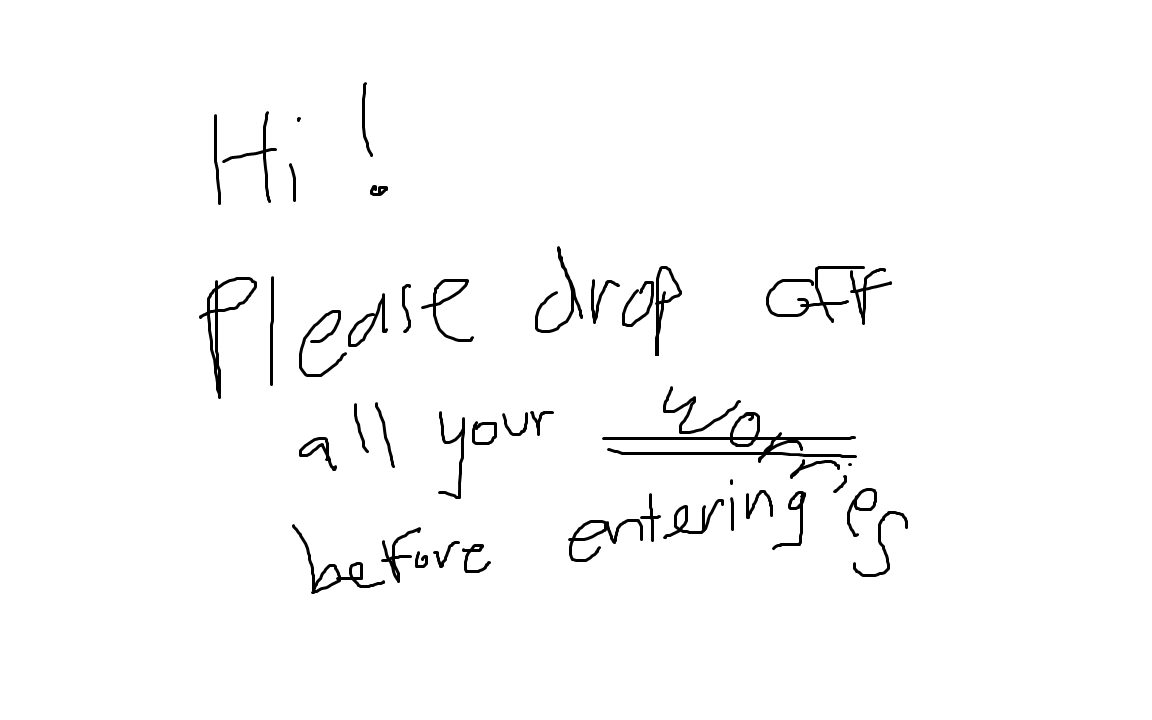 Hi!
Please drop off
all your worries
before entering